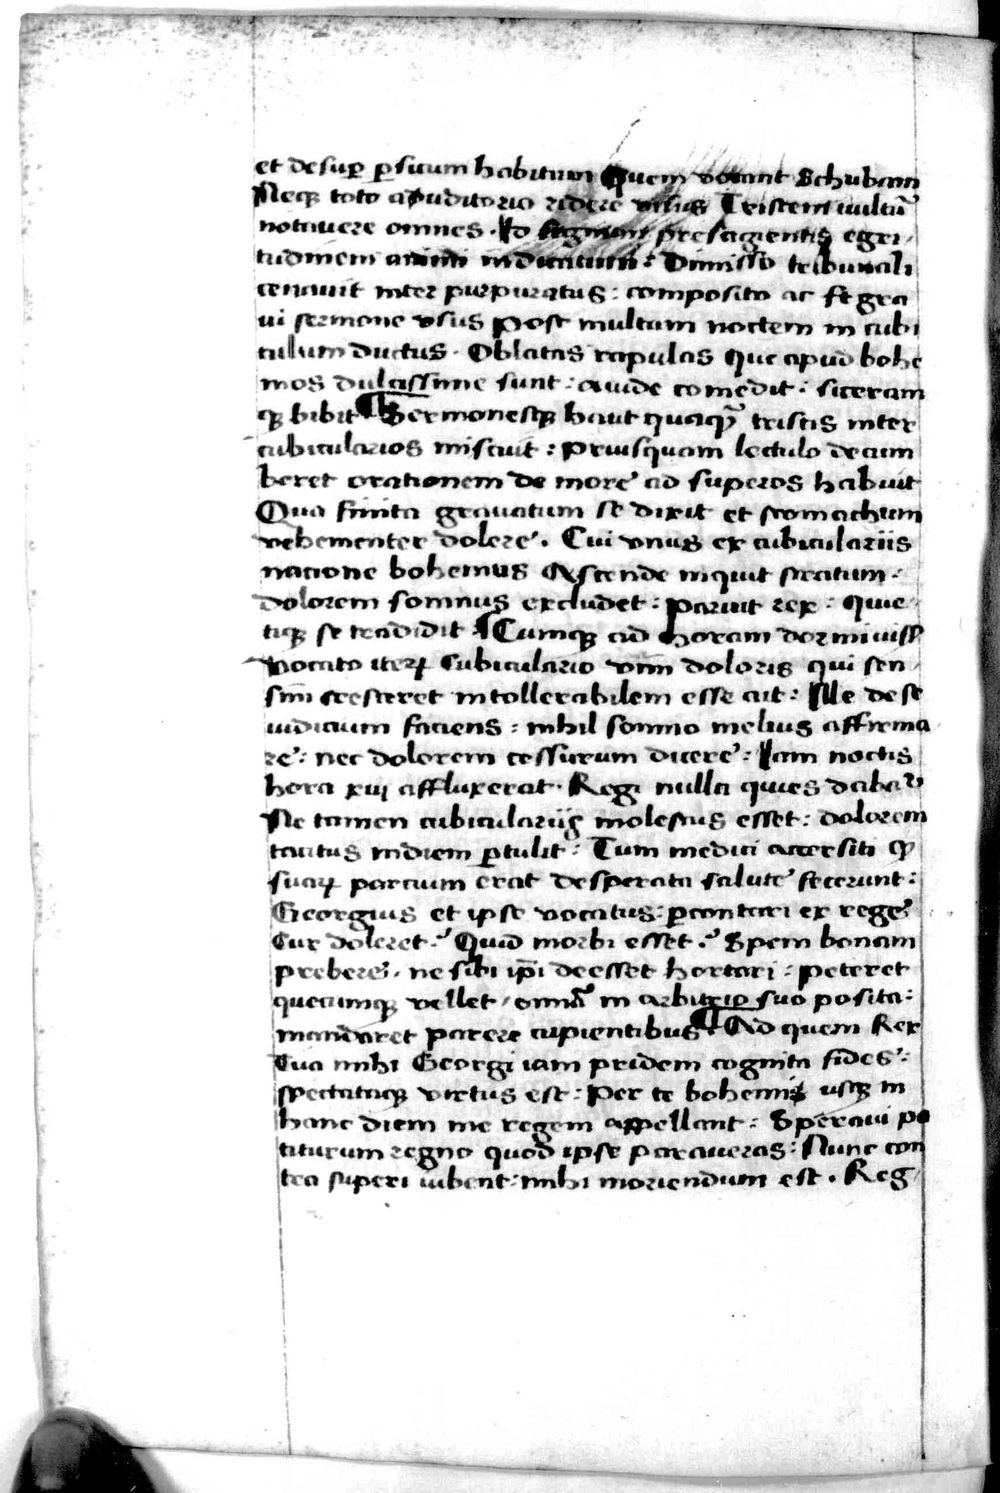 et desup̱ p̱suum habitum Quem vocant Schubam
Neqꝫ toto auditorio ridere visus Tristem uultū
notauere omnes. Id segnium presagientis egri
tudinem animi indicauim: Dimisso tribunali
cenauit inter purpuratus: composito ac fe gra
ui sermone vsus post multam noctem in cubi
culum ductus. Oblatas rapulas que apud bohe
mos dulcissime sunt: auide comedit: siceram
qꝫ bibit ¶ Sermonesqꝫ haut quaqꝫ̄ tristis inter
cubicularios miscuit: priusquam lectulo decum
beret orationem de more ad superos habuit
Qua finita grauatum se dixit et stomachum
vehementer dolere. Cui vnus ex cubiculariis
natione bohemus Ascende inquit stratum:
dolorem somnus excludet: paruit rex: Quie
tiqꝫ se tradidit ¶ Cumqꝫ ad horam dormiuiss
vocato iteꝝ Cubiculario vim doloris qui sen
sim cresceret intollerabilem esse ait: Ille de se
iudicium faciens: nihil somno melius affirma
re: nec dolorem cessurum dicere: Iam noctis
hora xvij affluxerat. Regi nulla quies dabat᷑
Ne tamen cubiculariis molestus esset: dolorem
tacitus indiem p̱tulit: Tum medici accersiti qꝫ
suaꝝ parcium erat desperata salute fecerunt:
Georgius et ipse vocatus: p̱contari ex rege
Cur doleret. Quid morbi esset. Spem bonam
prebere. ne sibi ip̄i deesset hortari: peteret
quecumqꝫ vellet, omīa in arbitrio suo posita:
mandaret parere cupientibus ¶ Ad quem Rex
Tua mihi Georgi iam pridem cognita fides:
spectataqꝫ virtus est: Per te bohemis usqꝫ in
hanc diem me regem appellant: Speraui po
titurum regno quod ipse paraueras: Nunc con
tra superi iubent: mihi moriendum est. Reg